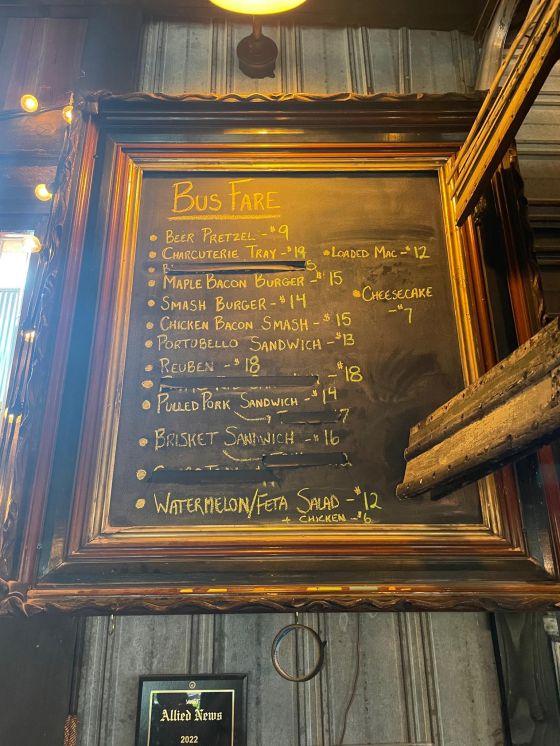 BUS FARE
BEER PRETZEL - $9
CHARCUTERIE TRAY - $19
LOADED MAC - $12
MAPLE BACON BURGER - $15
CHEESECAKE
- $7
SMASH BURGER - $14
CHICKEN BACON SMASH - $15
PORTUBELLO SANDWICH - $13
REUBEN - $18
- $18
PULLED PORK SANDWICH - $14
7
BRISKET SANDWICH - $16
WATERMELON/FETA SALAD - $12
+ CHICKEN - $6
Allied News
2022